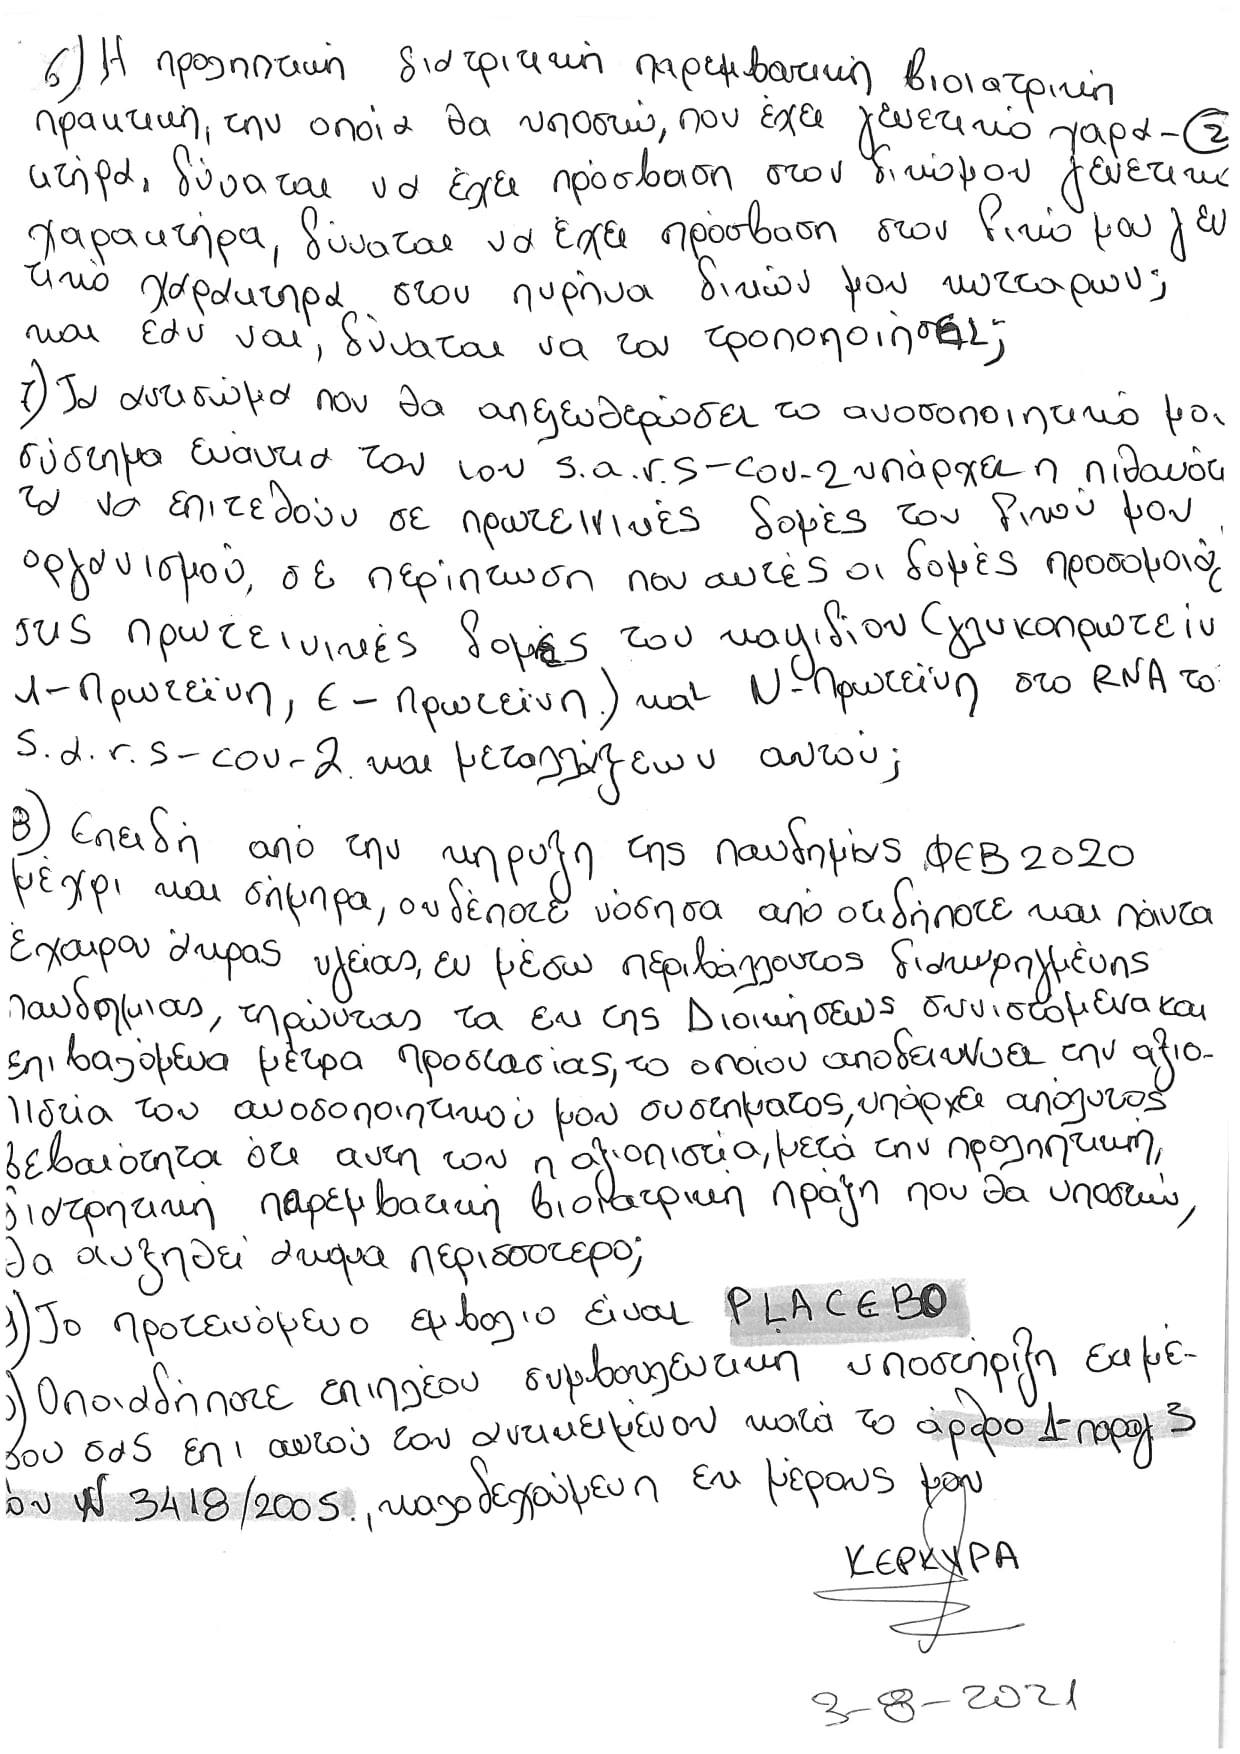 6) Η προληπτική διατριτική παρεμβατική βιοιατρική
πρακτική, την οποία θα υποστώ, που έχει γενετικό χαρα- ②
κτήρα, δύναται να έχει πρόσβαση στον δικόμου γενετικ
χαρακτήρα, δύναται να έχει πρόσβαση στον δικό μου γεν
τικό χαρακτηρα στου πυρήνα δικών μου κυτταρων;
και εάν ναι, δύναται να τον τροποποιήσει;
7) Τα αντισώμα που θα απελευθερώσει το ανοσοποιητικό μο
σύστημα ενάντια του ιου s.a.r.s-cov-2 υπάρχει η πιθανότ
τα να επιτεθούν σε πρωτεινικές δομές του δικού μου
οργανισμού, σε περίπτωση που αυτές οι δομές προσομοιάζ
στις πρωτεινικές δομές του καψιδίου (γλυκοπρωτείν
1-πρωτεΐνη, Ε-πρωτείνη) και Ν-πρωτείνη στο RNA το
s.a.r.s-cov-2 και μεταλλάξεων αυτού;
8) Επειδή από την κηρυξη της πανδημίας ΦΕΒ 2020
μέχρι και σήμερα, ουδέποτε νόσησα από οτιδήποτε και πάντα
έχαιρον άκρας υγείας, εν μέσω περιβάλλοντος διακηρηγμένης
πανδημιας, τηρώντας τα εκ της Διοικήσεως συνιστόμενα και
επιβαλόμενα μέτρα προστασίας, το οποίον αποδεικνύει την αξιο-
πιστία του ανοσοποιητικού μου συστήματος, υπάρχει απόλυτος
βεβαιότητα ότι αυτη του η αξιοπιστία, μετά την προληπτική,
διατρητική παρεμβατική βιοιατρικη πράξη που θα υποστώ,
θα αυξηθεί ακομα περισσοτερο;
9) Το προτεινόμενο εμβολιο είναι PLACEBO
) Οποιαδήποτε επιπλέον συμβουλευτική υποστήριξη εκ μέ-
ρου σας επι αυτού του αντικειμένου κατά το άρθρο 1 παραγ 3
ου Ν 3418/2005, καλοδεχούμενη εκ μέρους μου
ΚΕΡΚΥΡΑ
3-8-2021